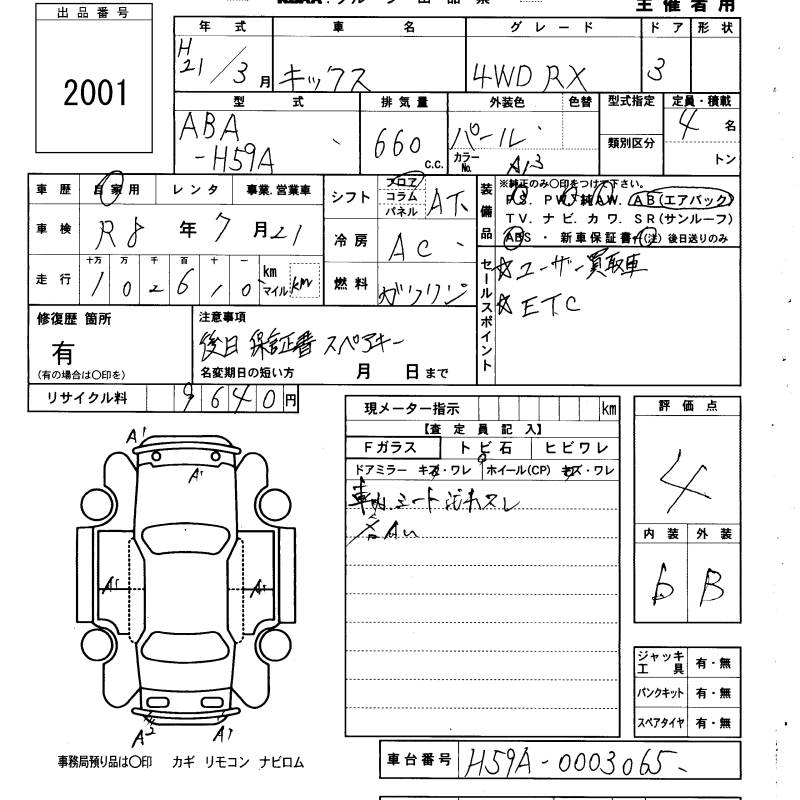 主催者用
出品番号
2001
年式 車名 グレード ドア 形状
H21/3月 キックス 4WD RX 3
型式 排気量 外装色 色替 型式指定 定員・積載
ABA-H59A 660 c.c. パール カラーNo. A13 類別区分 4名 トン
車歴 自家用 レンタ 事業.営業車
シフト フロア コラム パネル AT
装備品 ※純正のみ〇印をつけて下さい。
P.S. P.W. 純A.W. A B (エアバック)
T V. ナ ビ. カ ワ. S R (サンルーフ)
ABS ・ 新車保証書 (注) 後日送りのみ
車検 R8年7月21
冷房 AC
走行 十万 万 千 百 十 一
102610 km マイル km
燃料 ガソリン
セールスポイント
☆ユーザー買取車
☆ETC
修復歴 箇所
有
(有の場合は〇印を)
注意事項
後日 保証書 スペアキー
名変期日の短い方 月 日まで
リサイクル料 9640円
現メーター指示 km
【査定員記入】
Fガラス トビ石 ヒビワレ
ドアミラー キズ・ワレ ホイール(CP) キズ・ワレ
車内シート汚れスレ
各AU
評価点
4
内装 外装
b B
A1
A1
A1 A1
A2 A1
ジャッキ工具 有・無
パンクキット 有・無
スペアタイヤ 有・無
事務局預り品は〇印 カギ リモコン ナビロム
車台番号 H59A-0003065